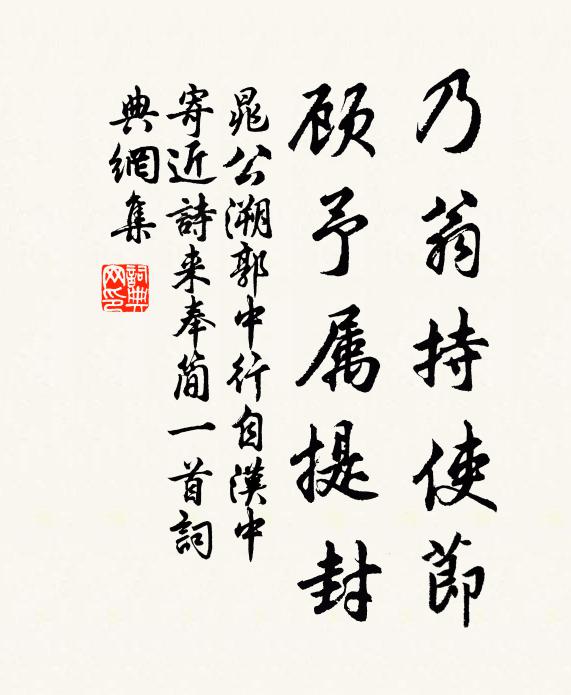 乃翁持使節
顾予属提封
晁公溯郭中行自漢中
寄近詩来奉简一首詞
典網集
詞典网印